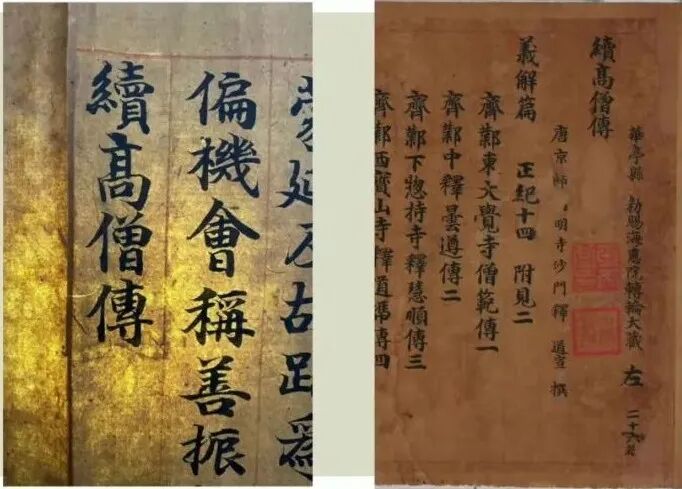 華亭縣 勑賜海惠院轉輪大藏 左 二十六
續髙僧傳
唐京師 明寺沙門釋 道宣 撰
義解篇 正紀十四 附見二
齊鄴東大覺寺僧範傳一
齊鄴中釋曇遵傳二
齊鄴下惣持寺釋慧順傳三
齊鄴西寶山寺釋道憑傳四
延及古
偏機會稱善振
續髙僧傳